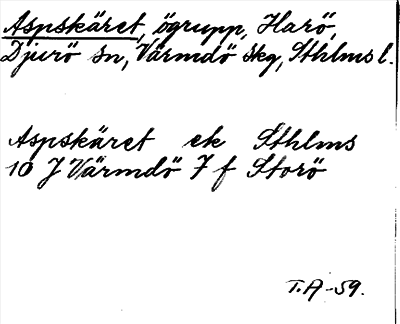 Aspskäret, ögrupp, Harö,
Djurö sn, Värmdö skg, Sthlms l.
Aspskäret ek Sthlms
10 J Värmdö 7 f Storö
T.A -59.